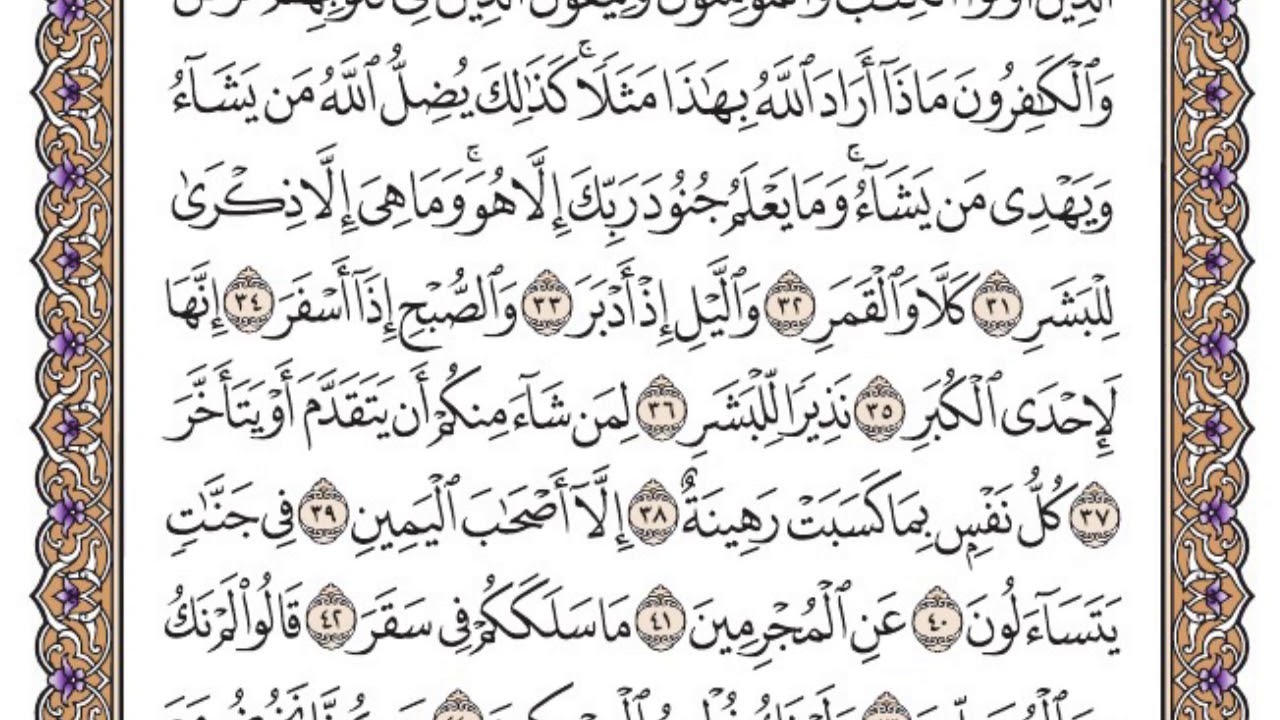 الَّذِينَ أُوتُوا الْكِتَٰبَ وَالْمُؤْمِنُونَ وَلِيَقُولَ الَّذِينَ فِى قُلُوبِهِم مَّرَضٌ
وَٱلْكَٰفِرُونَ مَاذَآ أَرَادَ ٱللَّهُ بِهَٰذَا مَثَلًا ۚ كَذَٰلِكَ يُضِلُّ ٱللَّهُ مَن يَشَآءُ
وَيَهْدِى مَن يَشَآءُ ۚ وَمَا يَعْلَمُ جُنُودَ رَبِّكَ إِلَّا هُوَ ۚ وَمَا هِىَ إِلَّا ذِكْرَىٰ
لِلْبَشَرِ ٣١ كَلَّا وَٱلْقَمَرِ ٣٢ وَٱلَّيْلِ إِذْ أَدْبَرَ ٣٣ وَٱلصُّبْحِ إِذَآ أَسْفَرَ ٣٤ إِنَّهَا
لَإِحْدَى ٱلْكُبَرِ ٣٥ نَذِيرًا لِّلْبَشَرِ ٣٦ لِمَن شَآءَ مِنكُمْ أَن يَتَقَدَّمَ أَوْ يَتَأَخَّرَ
٣٧ كُلُّ نَفْسٍۭ بِمَا كَسَبَتْ رَهِينَةٌ ٣٨ إِلَّآ أَصْحَٰبَ ٱلْيَمِينِ ٣٩ فِى جَنَّٰتٍ
يَتَسَآءَلُونَ ٤٠ عَنِ ٱلْمُجْرِمِينَ ٤١ مَا سَلَكَكُمْ فِى سَقَرَ ٤٢ قَالُوا۟ لَمْ نَكُ